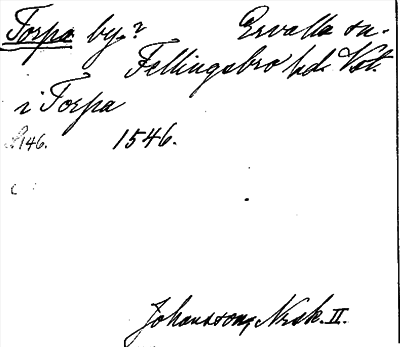 Torpa by? Ervalla sn.
Fellingsbro hd. Vst.
i Torpa
146. 1546.
Johansson, Nrsk. II.